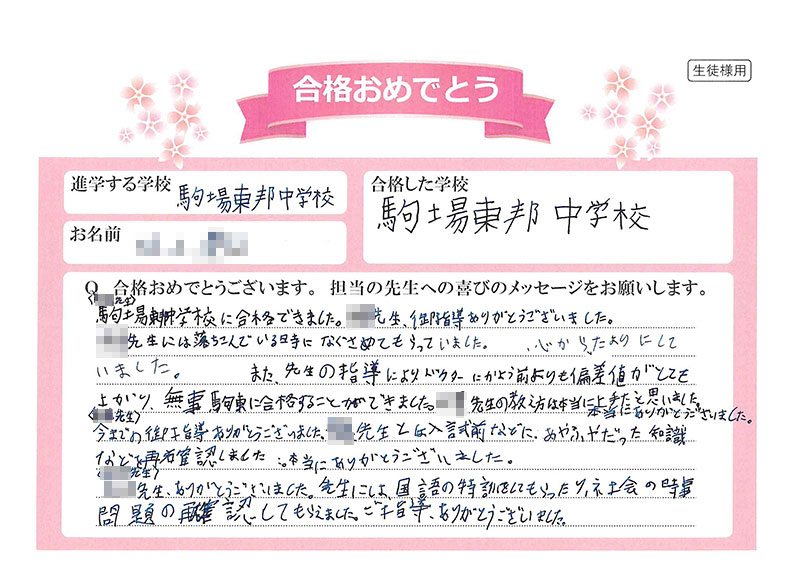 生徒様用
合格おめでとう
進学する学校 駒場東邦中学校
合格した学校
駒場東邦中学校
お名前
Q 合格おめでとうございます。担当の先生への喜びのメッセージをお願いします。
先生)
駒場東邦中学校に合格できました。先生、御指導ありがとうございました。
先生には落ちこんでいる時になぐさめてもらっていました。心からたよりにして
いました。また、先生の指導によりドクターにかよう前よりも偏差値がとても
上がり、無事駒東に合格することができました。先生の教え方は本当に上手だと思いました。
先生) 本当にありがとうございました。
今までの御指導ありがとうございました。先生とは入試前などに、あやふやだった知識
などを再確認しました。本当にありがとうございました。
先生)
先生、ありがとうございました。先生には、国語の特訓をしてもらったり、社会の時事
問題の再確認してもらえました。ご指導、ありがとうございました。